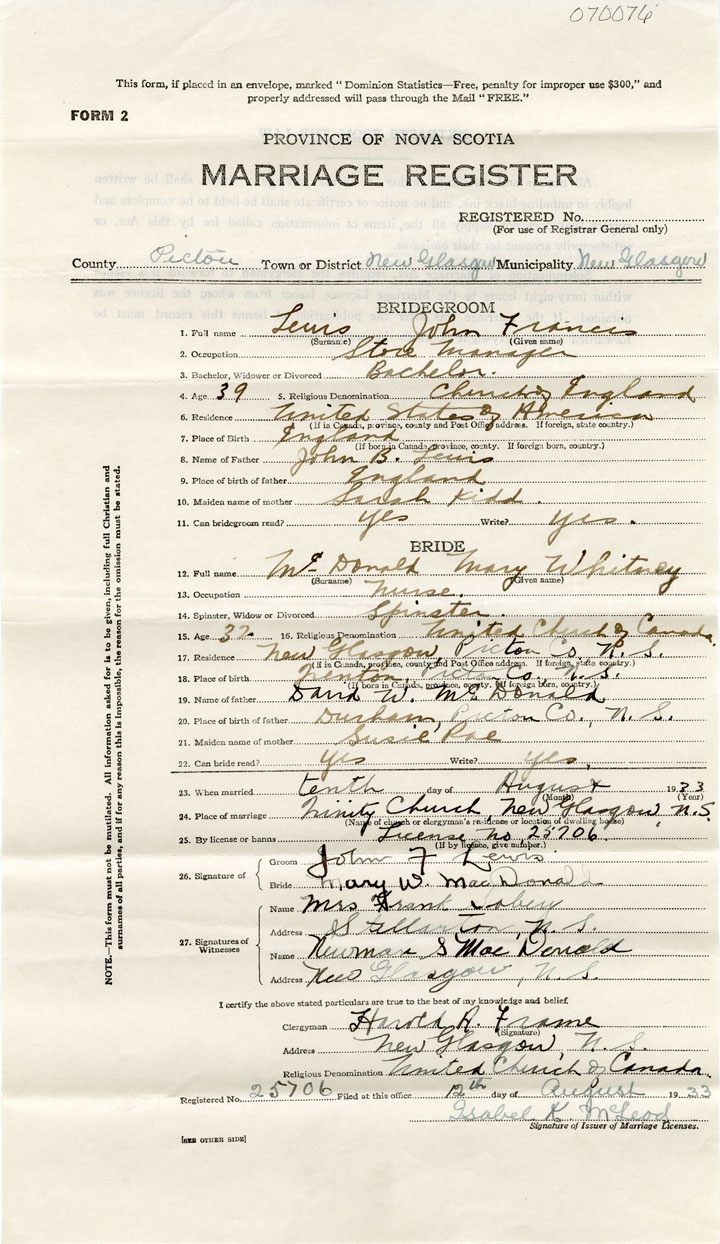 070076
This form, if placed in an envelope, marked "Dominion Statistics—Free, penalty for improper use $300," and
properly addressed will pass through the Mail "FREE."
FORM 2
PROVINCE OF NOVA SCOTIA
MARRIAGE REGISTER
REGISTERED No.
(For use of Registrar General only)
County Pictou Town or District New Glasgow Municipality New Glasgow
BRIDEGROOM
1. Full name Lewis John Francis
(Surname) (Given name)
2. Occupation Store Manager
3. Bachelor, Widower or Divorced Bachelor.
4. Age 39 5. Religious Denomination Church of England
6. Residence United States of America
(If in Canada, province, county and Post Office address. If foreign, state country.)
7. Place of Birth England
(If born in Canada, province, county. If foreign born, country.)
8. Name of Father John B. Lewis
9. Place of birth of father England
10. Maiden name of mother Sarah Kidd.
11. Can bridegroom read? Yes Write? Yes.
BRIDE
12. Full name McDonald Mary Whitney
(Surname) (Given name)
13. Occupation Nurse.
14. Spinster, Widow or Divorced Spinster.
15. Age 32 16. Religious Denomination United Church of Canada.
17. Residence New Glasgow, Pictou Co. N.S.
(If in Canada, province, county and Post Office address. If foreign, state country.)
18. Place of birth Trenton, Pictou Co., N.S.
(If born in Canada, province, county. If foreign born, country.)
19. Name of father David W. McDonald
20. Place of birth of father Durham, Pictou Co., N.S.
21. Maiden name of mother Susie Rae
22. Can bride read? Yes Write? Yes.
23. When married tenth day of August 1933
(Month) (Year)
24. Place of marriage Trinity Church, New Glasgow N.S.
(Name of church or clergyman's residence or location of dwelling house)
25. By license or banns License no 25706.
(If by license, give number.)
26. Signature of
Groom John F Lewis
Bride Mary W. MacDonald
27. Signatures of Witnesses
Name Mrs Frank Sobey
Address Stellarton, N.S.
Name Newman S MacDonald
Address New Glasgow, N.S.
I certify the above stated particulars are true to the best of my knowledge and belief.
Clergyman Harold A. Frame
(Signature)
Address New Glasgow, N.S.
Religious Denomination United Church of Canada.
Registered No. 25706 Filed at this office 12th day of August 1933
Isabel K. McLeod
Signature of Issuer of Marriage Licenses.
[SEE OTHER SIDE]
NOTE.—This form must not be mutilated. All information asked for is to be given, including full Christian and
surnames of all parties, and if for any reason this is impossible, the reason for the omission must be stated.